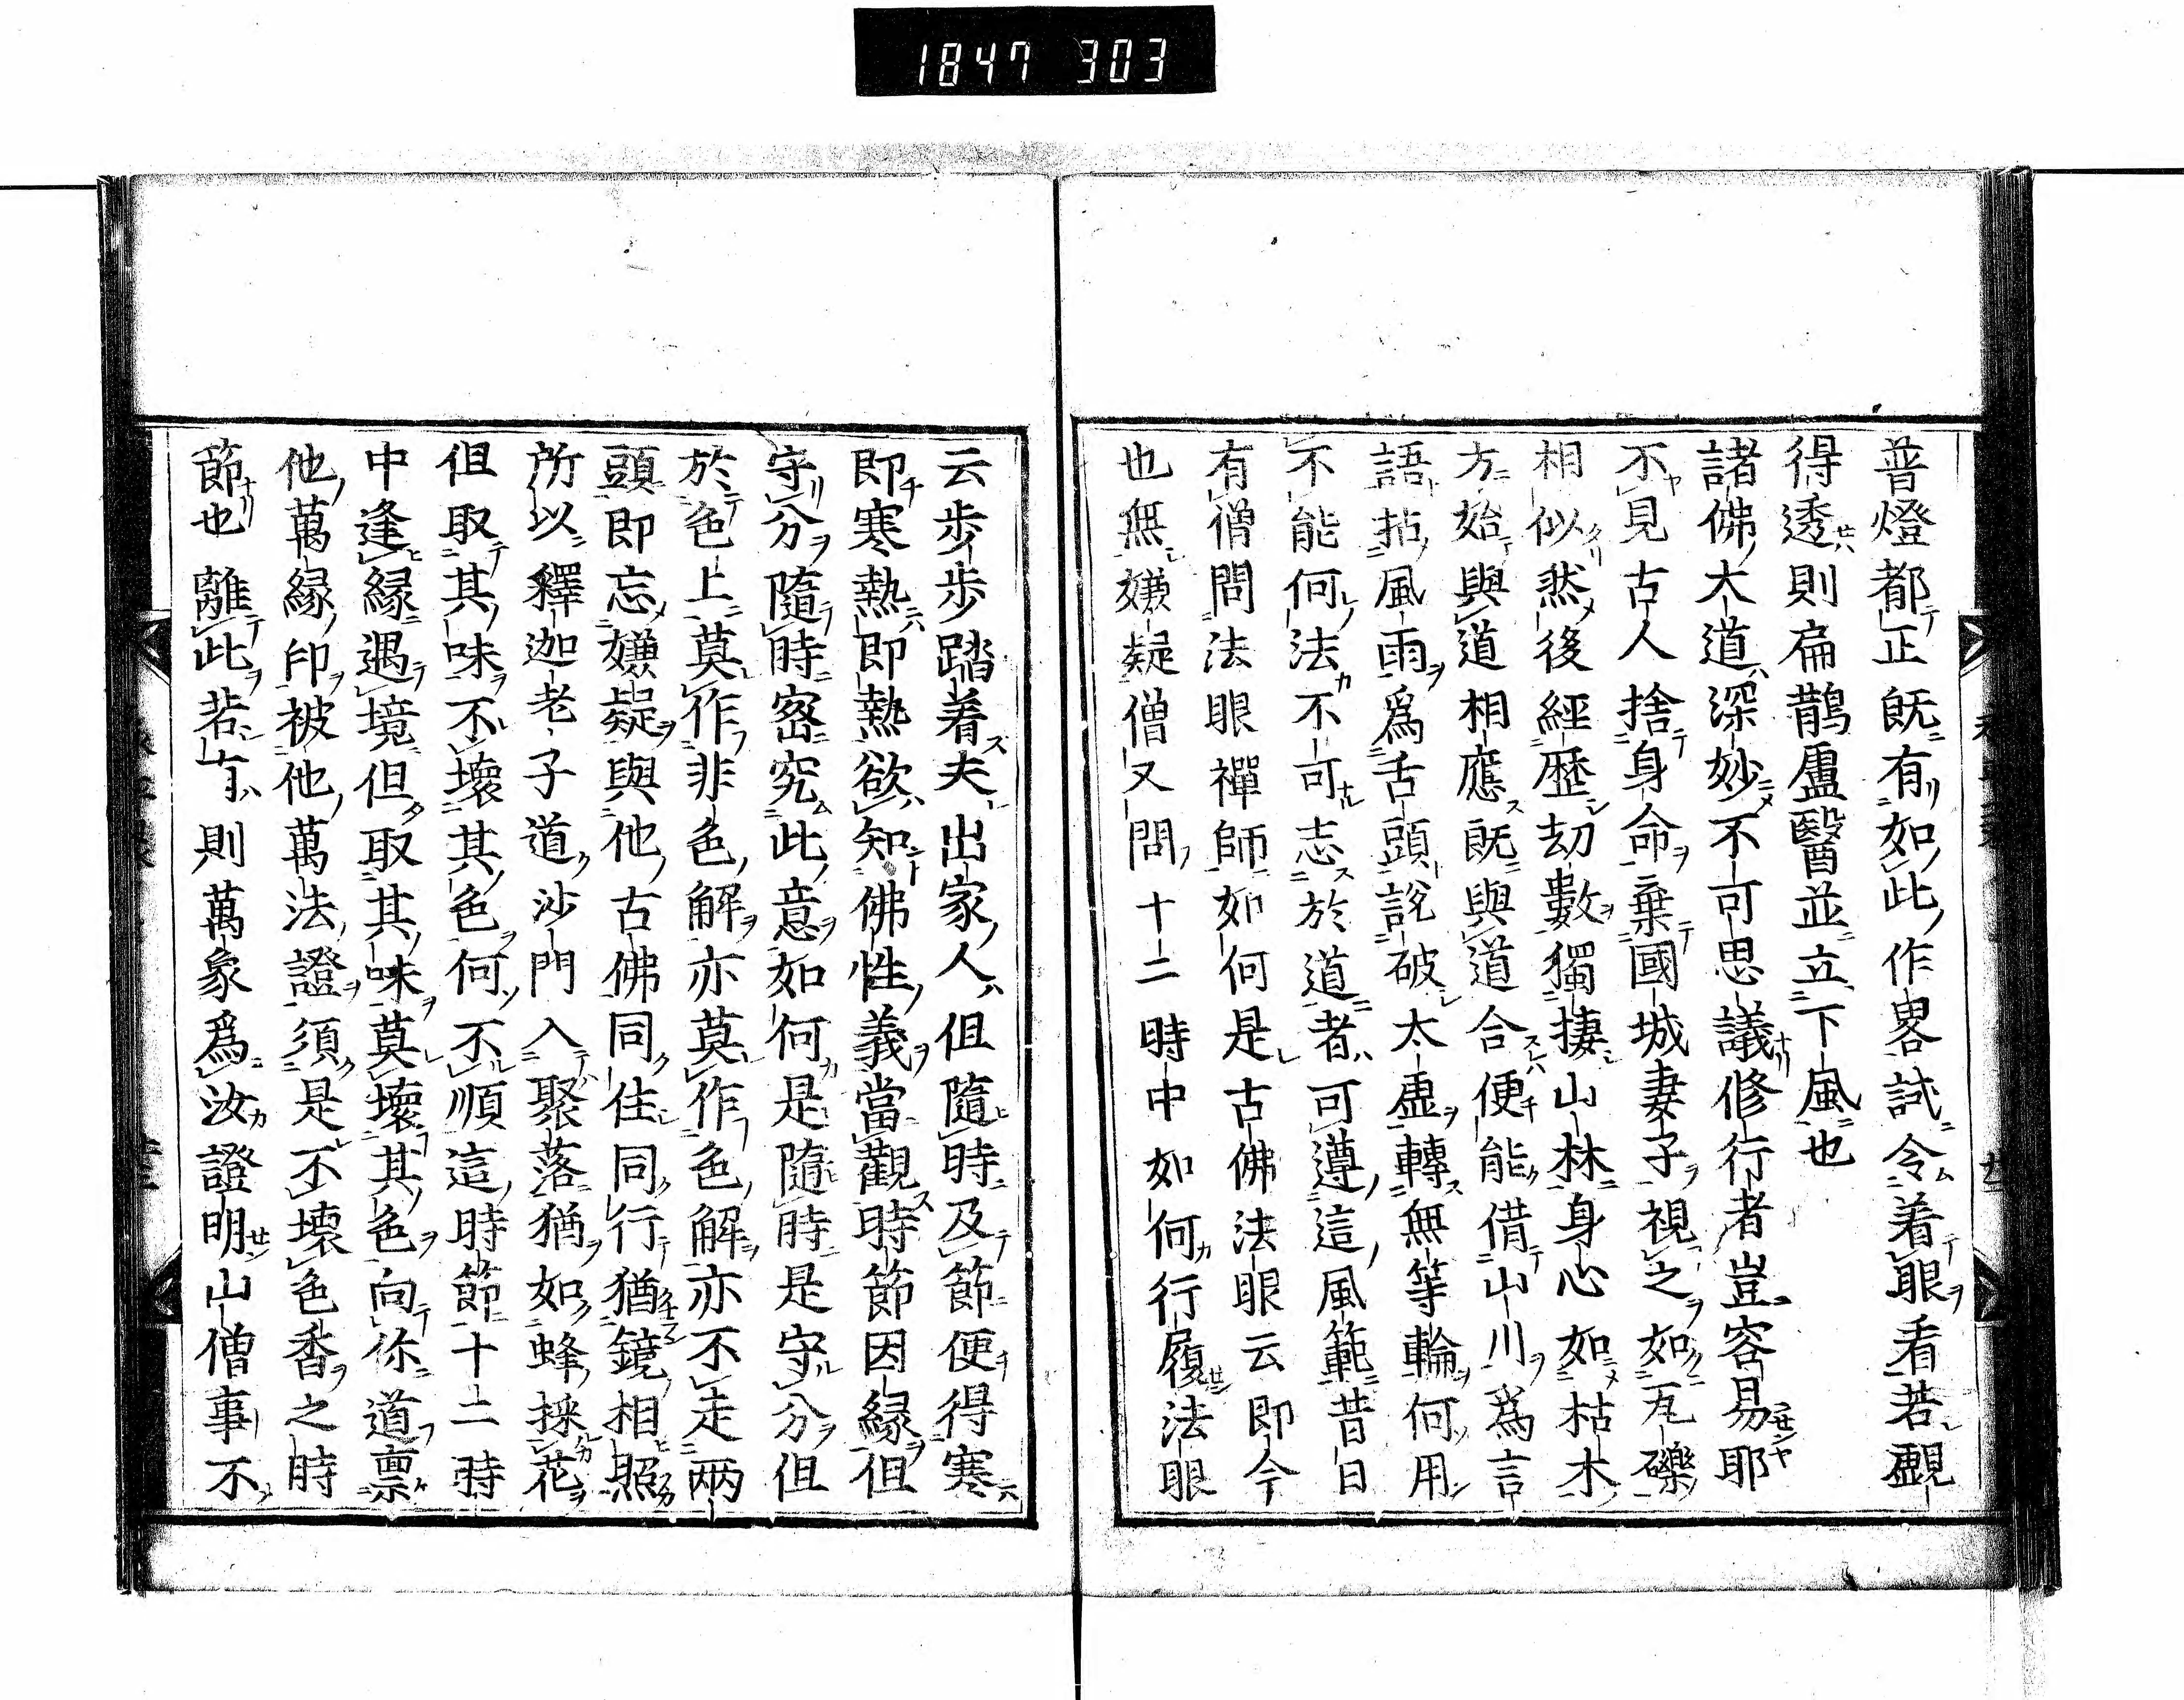 1847 303
普燈都正既有如此作畧試令着眼看若覰
得透則扁鵲盧醫並立下風也
諸佛大道深妙不可思議修行者豈容易耶
不見古人捨身命棄國城妻子視之如瓦礫
相似然後經歷劫數獨棲山林身心如枯木
方始與道相應既與道合便能借山川爲言
語拈風雨爲舌頭説破太虛轉無等輪何用
不能何法不可志於道者可遵這風範昔日
有僧問法眼禪師如何是古佛法眼云即今
也無嫌疑僧又問十二時中如何行履法眼
云步步踏着夫出家人但隨時及節便得寒
即寒熱即熱欲知佛性義當觀時節因緣但
守分隨時密究此意如何是隨時是守分但
於色上莫作非色解亦莫作色解亦不走兩
頭即忘嫌疑與他古佛同住同行猶鏡相照
所以釋迦老子道沙門入聚落猶如蜂採花
但取其味不壞其色何不順這時節十二時
中逢緣遇境但取其味莫壞其色向你道禀
他萬緣印被他萬法證須是不壞色香之時
節也離此若有則萬象爲汝證明山僧事不